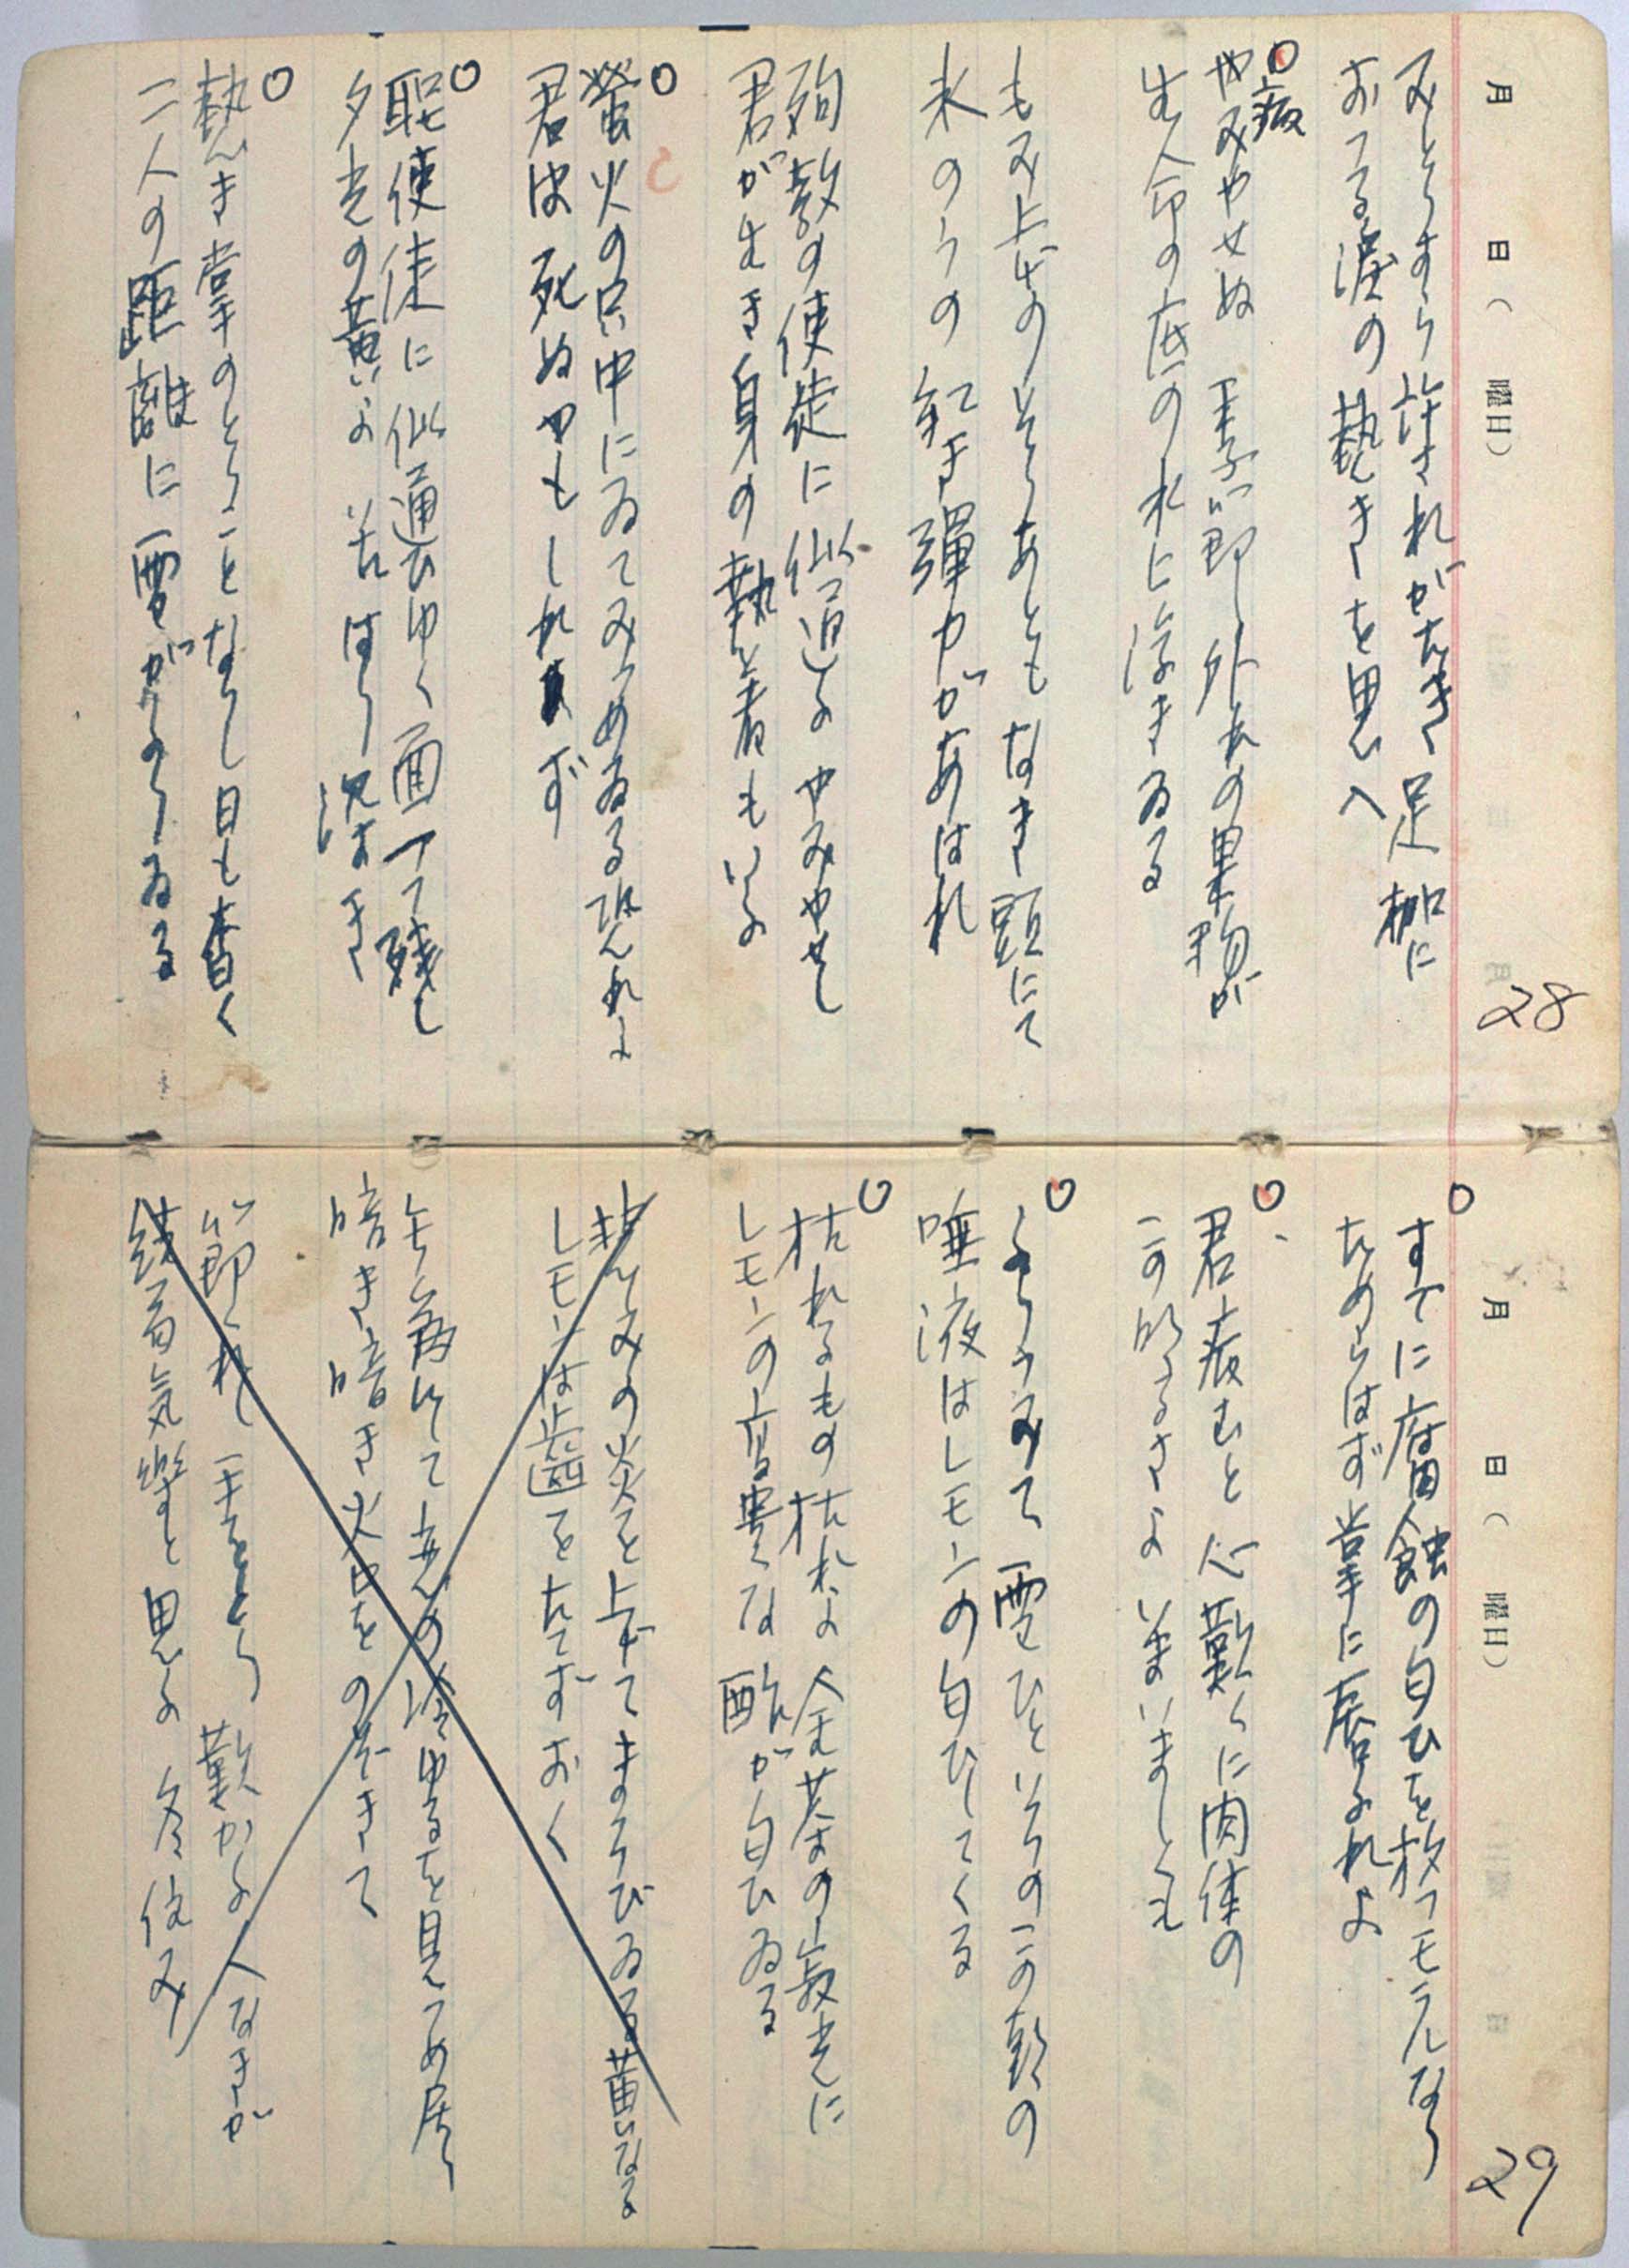 月 日( 曜日)
28
みとりすら許されがたき足枷に
おつる涙の熱きを思へ
病
やみやせぬ 季節外れの果物が
生命の底の水に浮きゐる
もみ上げのいろあともなき頭にて
氷のうの軽き弾力があはれ
殉教の使徒に似つ迫る やみやせし
君が生き身の執着もいよ
螢火の穴中にゐてみつめゐる恐れよ
君は死ぬかもしれず
聖使徒に似通ひゆく面て残し
夕光の黄よ 苦はり沈まき
熱き掌のとりことなりし日も杳く
二人の距離に雪がふりゐる
月 日( 曜日)
29
すでに腐蝕の匂ひを放つモラルなり
ためらはず掌に唇ふれよ
君病むと心歎くに肉体の
この明るさよ いまいましくも
ふりつみて雪ひといろのこの朝の
唾液はレモンの匂ひしてくる
枯れるもの枯れよ 全墓の寂光に
レモンの高貴な酢が匂ひゐる
悲しみの炎を上げてまろびゐる黄なる
レモンは歯をたてずおく
年病みて恋の冷ゆるを見つめ居り
暗き暗き火口をのぞきて
節くれし手をとり歎かふ人なきが
結句気楽と思ふ 冬住み